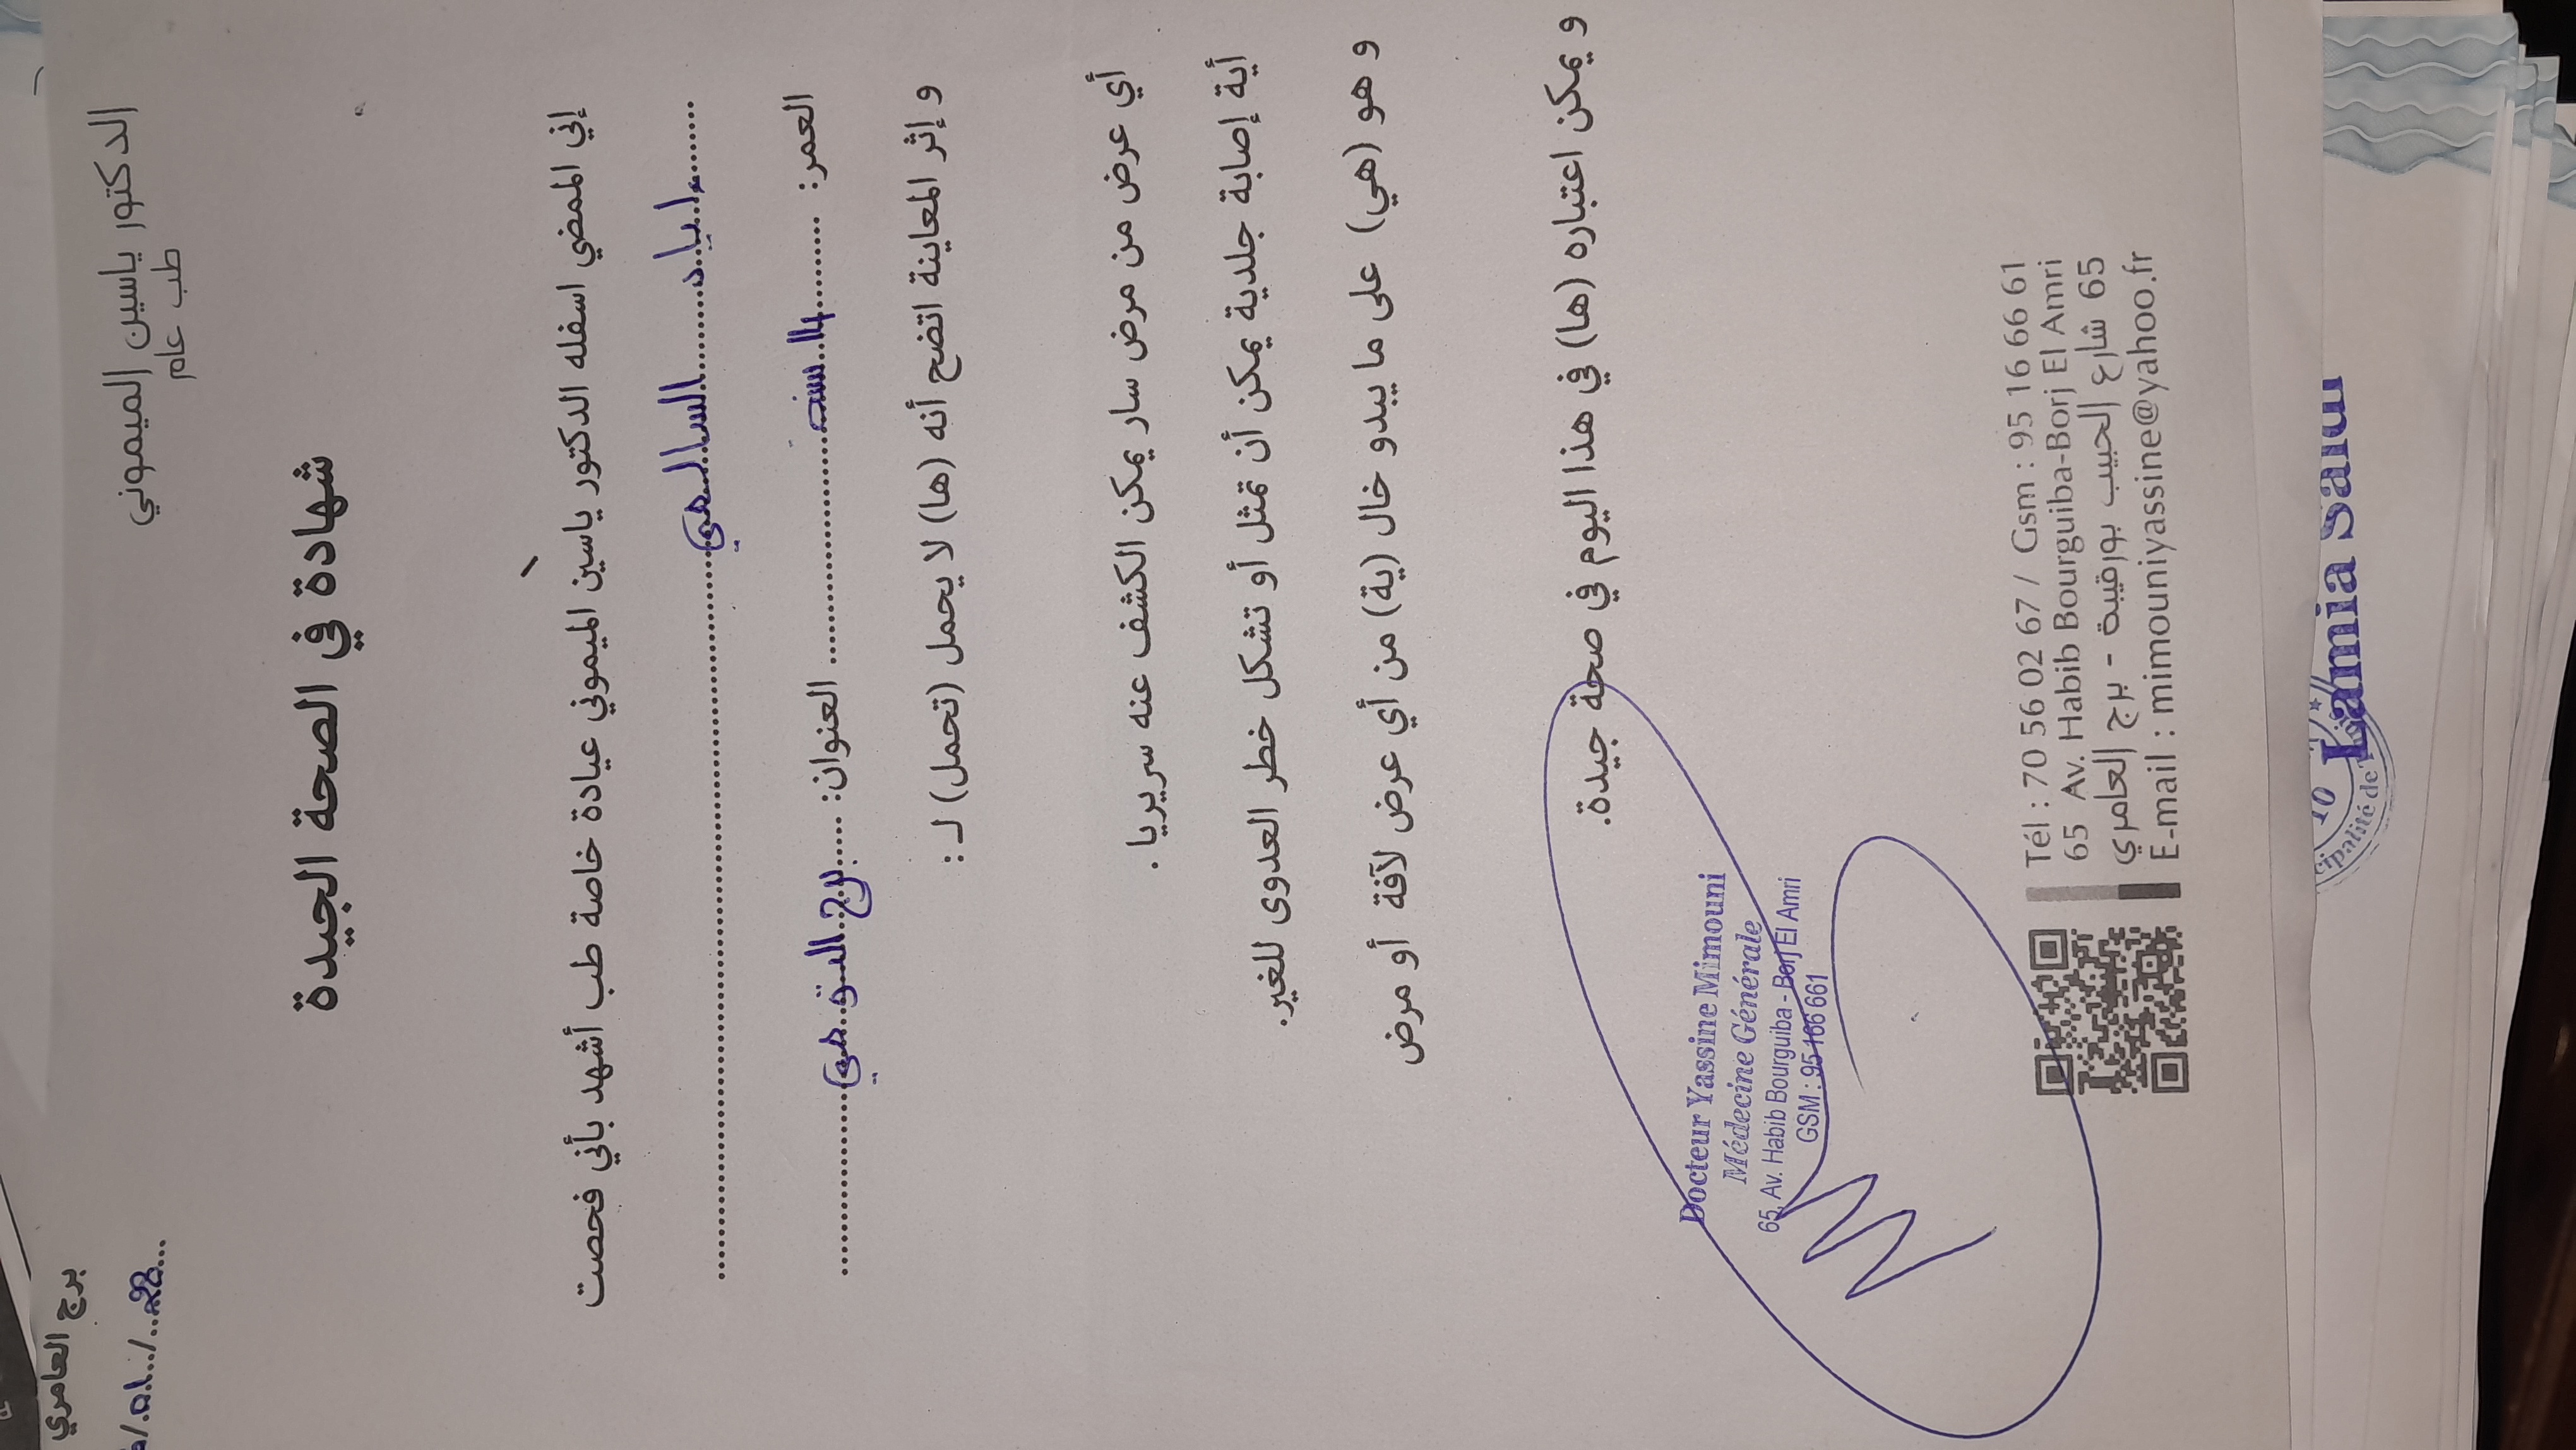 الدكتور ياسين الميموني
طب عام
برج العامري
شهادة في الصحة الجيدة
إني الممضي اسفله الدكتور ياسين الميموني عيادة خاصة طب أشهد بأني فحصت
........إياد............السالمي........................................
العمر: ..........14..سنة.................... العنوان: ......برج..التومي..................
و إثر المعاينة اتضح أنه (ها) لا يحمل (تحمل) لـ :
أي عرض من مرض سار يمكن الكشف عنه سريريا .
أية إصابة جلدية يمكن أن تمثل أو تشكل خطر العدوى للغير.
و هو (هي) على ما يبدو خال (ية) من أي عرض لآفة أو مرض
و يمكن اعتباره (ها) في هذا اليوم في صحة جيدة.
Docteur Yassine Mimouni
Médecine Générale
65, Av. Habib Bourguiba - Borj El Amri
GSM : 95 166 661
Tél : 70 56 02 67 / Gsm : 95 16 66 61
65 Av. Habib Bourguiba-Borj El Amri
65 شارع الحبيب بورقيبة - برج العامري
E-mail : mimouniyassine@yahoo.fr
Lamia